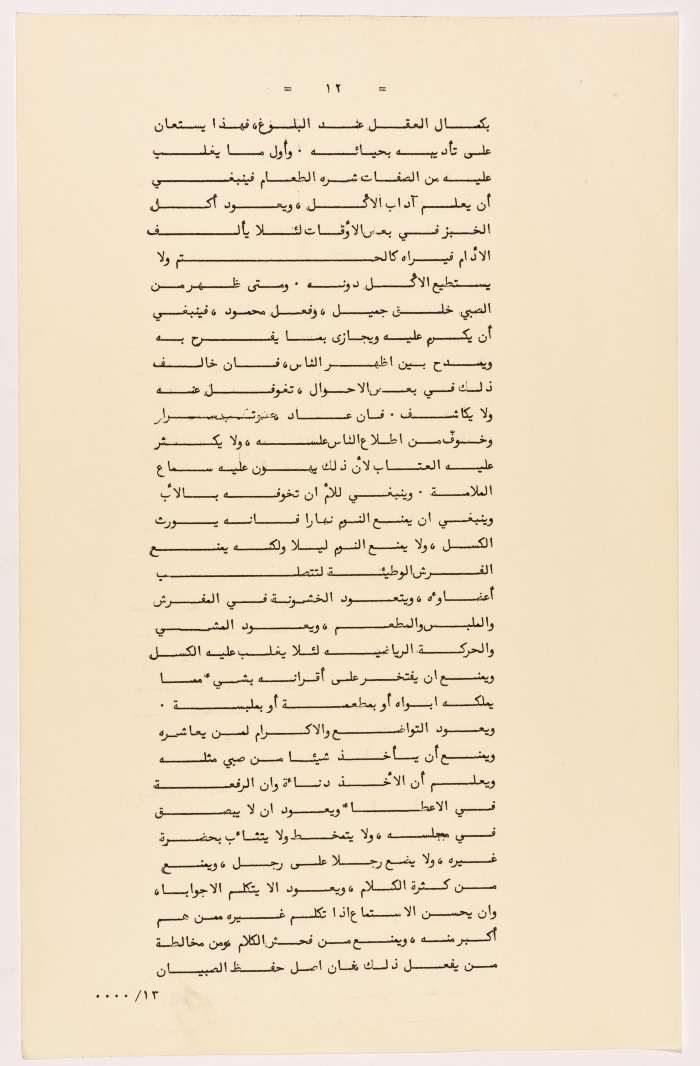 = ١٢ =
بكمال العقل عند البلوغ، فهذا يستعان
على تأديبه بحيائه . وأول ما يغلب
عليه من الصفات شره الطعام فينبغي
أن يعلم آداب الاكل ، ويعود أكل
الخبز في بعض الأوقات لئلا يألف
الادام فيراه كالحتم ولا
يستطيع الاكل دونه . ومتى ظهر من
الصبي خلق جميل ، وفعل محمود ، فينبغي
أن يكرم عليه ويجازى بما يفرح به
ويمدح بين اظهر الناس، فان خالف
ذلك في بعض الاحوال ، تغوفل عنه
ولا يكاشف . فان عاد
وخوف من اطلاع الناس عليه ، ولا يكثر
عليه العتاب لأن ذلك يهون عليه سماع
الملامة . وينبغي للأم ان تخوفه بالأب
وينبغي ان يمنع النوم نهارا فانه يورث
الكسل ، ولا يمنع النوم ليلا ولكنه يمنع
الفرش الوطيئة لتتصلب
أعضاوءه ، ويتعود الخشونة في المفرش
والملبس والمطعم ، ويعود المشي
والحركة الرياضيه لئلا يغلب عليه الكسل
ويمنع ان يفتخر على أقرانه بشيء مما
يملكه ابواه أو بمطعمة أو بملبسة .
ويعود التواضع والاكرام لمن يعاشره
ويمنع أن يأخذ شيئا من صبي مثله
ويعلم أن الأخذ دناءة وان الرفعة
في الاعطاء ويعود ان لا يبصق
في مجلسه ، ولا يتمخط ولا يتثائب بحضرة
غيره ، ولا يضع رجلا على رجل ، ويمنع
من كثرة الكلام ، ويعود الا يتكلم الا جوابا ،
وان يحسن الاستماع اذا تكلم غيره ممن هم
أكبر منه ، ويمنع من فحش الكلام ومن مخالطة
من يفعل ذلك فان اصل حفظ الصبيان
١٣/ ٠٠٠٠